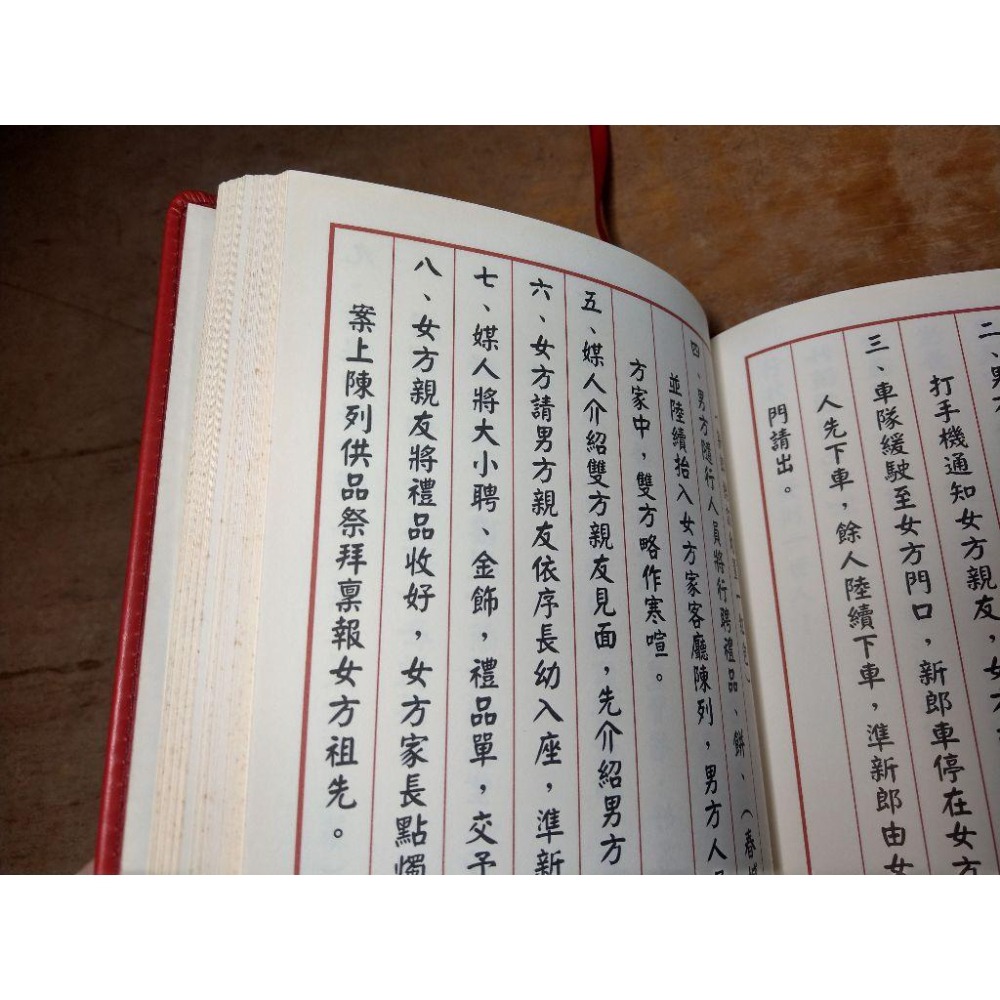 二、男方
打手機通知女方親友，女方
三、車隊緩駛至女方門口，新郎車停在女方
人先下車，餘人陸續下車，準新郎由女
門請出。
四、男方隨行人員將行聘禮品、餅、
並陸續抬入女方家客廳陳列，男方人
方家中，雙方略作寒喧。
五、媒人介紹雙方親友見面，先介紹男方
六、女方請男方親友依序長幼入座，準新
七、媒人將大小聘、金飾，禮品單，交予
八、女方親友將禮品收好，女方家長點燭
案上陳列供品祭拜稟報女方祖先。